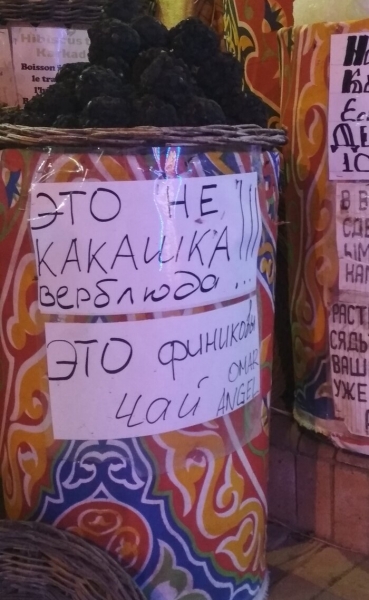 Hibiscus
Karkad
Boisson
le tra
ЭТО НЕ !!!
КАКАШКА
верблюда ...
ЭТО финиковы
чай OMAR
ANGEL
Ка
ДЕ
10
В В
СДЕ
ЫМ
НАП
РАСТ
СЯДЬ
ВАШ
УЖЕ